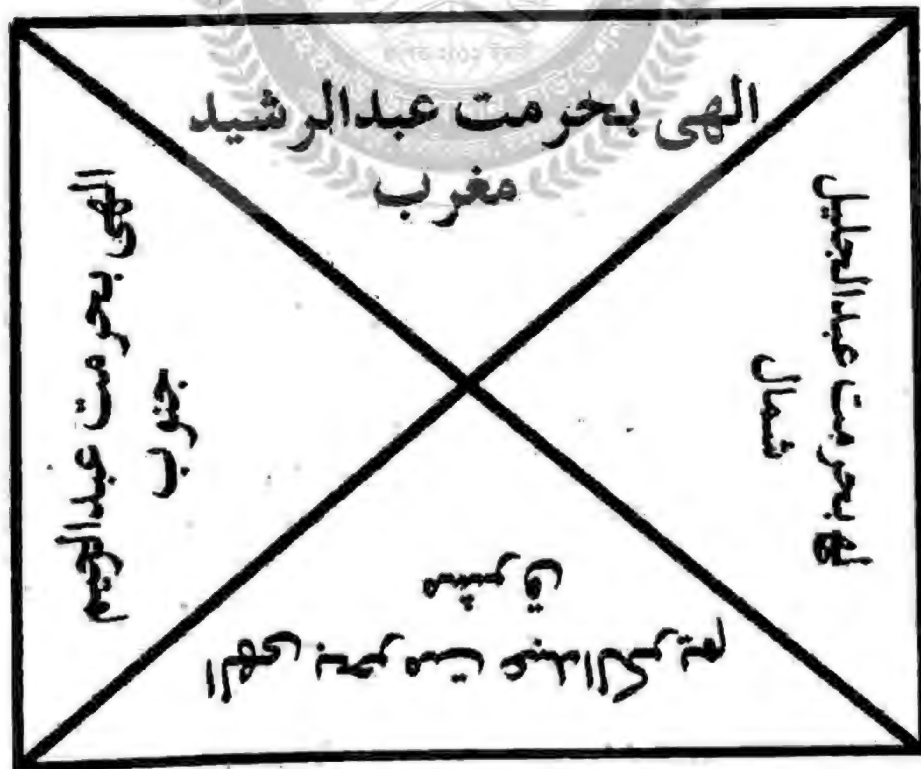 الهی بحرمت عبدالرشید
مغرب
بحرمت عبدالجلیل
شمال
الهی بحرمت عبدالکریم
مشرق
الهی بحرمت عبدالرحیم
جنوب